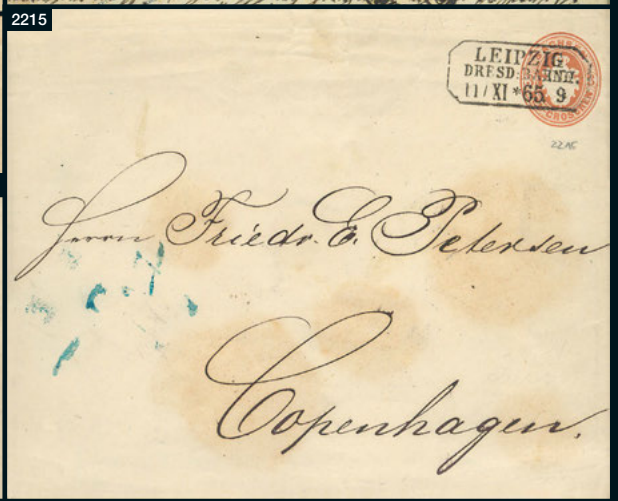 2215
LEIPZIG
DRESD: BAHNH.
11/XI *65 9
GROSCHEN
2215
Herrn Friedr. E. Petersen
Copenhagen.